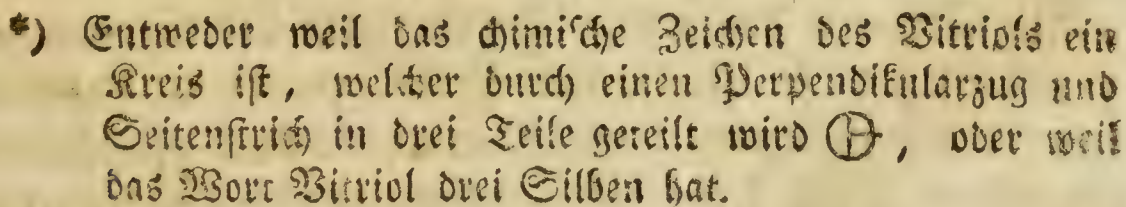 *) Entweder weil das chimische Zeichen des Vitriols ein
Kreis ist, welcher durch einen Perpendikularzug und
Seitenstrich in drei Teile geteilt wird, oder weil
das Wort Vitriol drei Silben hat.